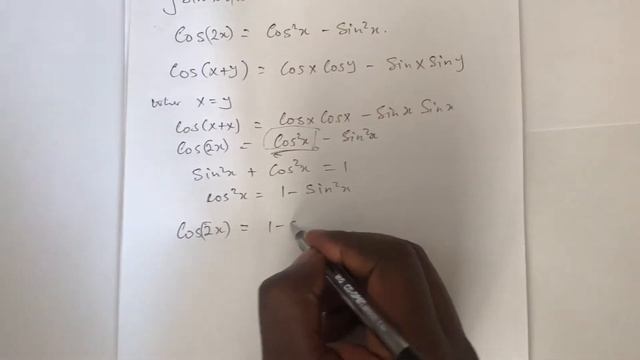 Cos(2x) = Cos²x - Sin²x.
Cos(x+y) = Cosx Cosy - Sinx Siny
when x = y
Cos(x+x) = Cosx Cosx - Sinx Sinx
Cos(2x) = Cos²x - Sin²x
Sin²x + Cos²x = 1
Cos²x = 1 - Sin²x
Cos(2x) = 1 -